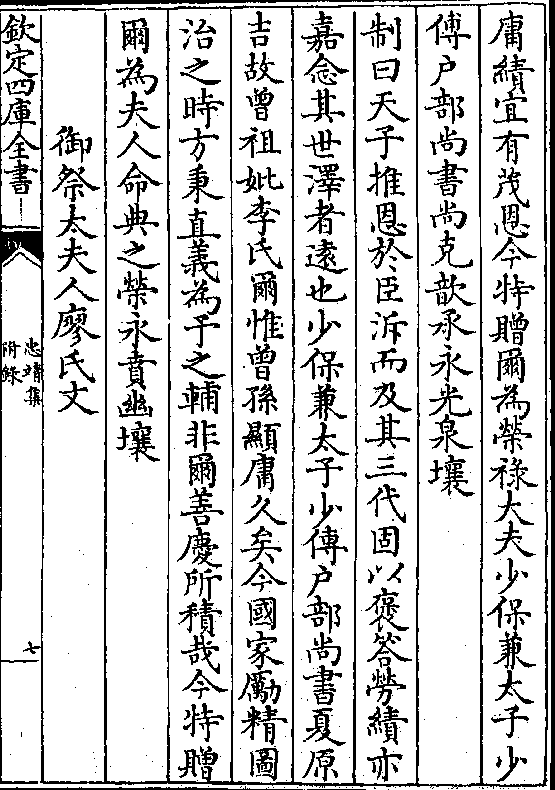 庸績宜有茂恩今特贈爾為榮祿大夫少保兼太子少
傅户部尚書尚克歆承永光泉壤
制曰天子推恩於臣泝而及其三代固以褒答勞績亦
嘉念其世澤者遠也少保兼太子少傅户部尚書夏原
吉故曾祖妣李氏爾惟曾孫顯庸久矣今國家勵精圖
治之時方秉直義為予之輔非爾善慶所積哉今特贈
爾為夫人命典之榮永賁幽壤
御祭太夫人廖氏文
欽定四庫全書
忠靖集
附錄
七